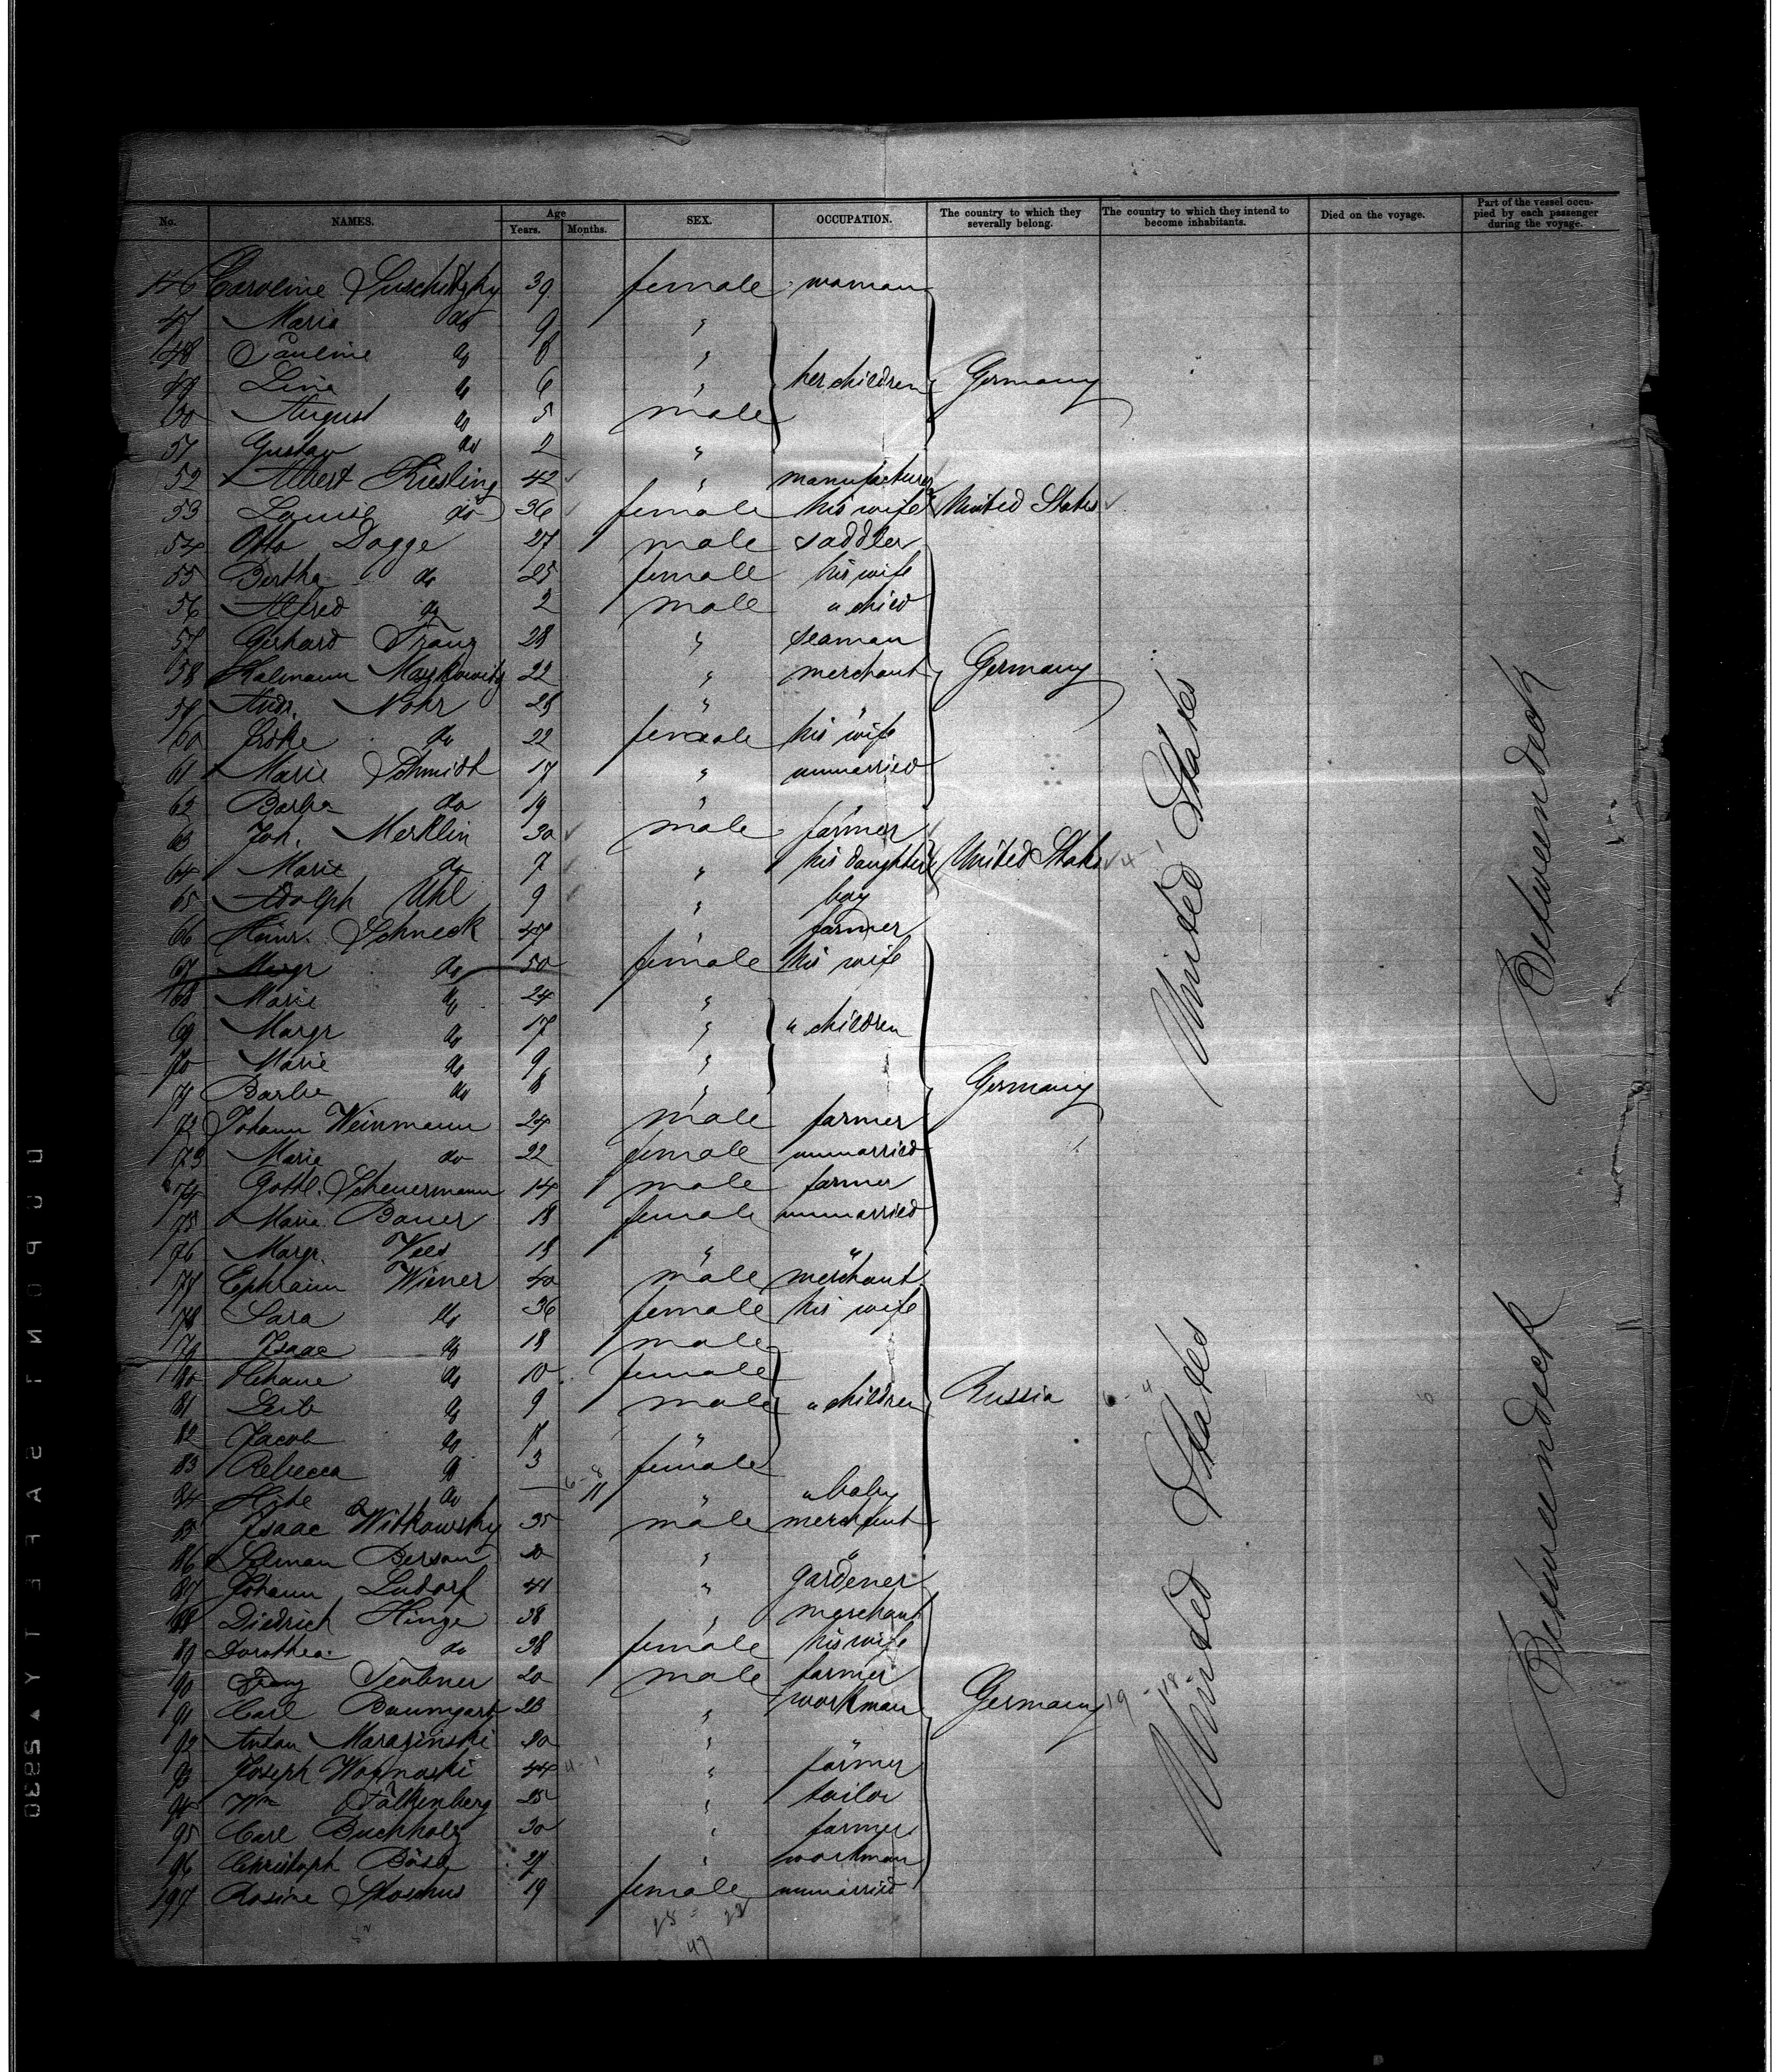 No. NAMES. Age Years. Months. SEX. OCCUPATION. The country to which they severally belong. The country to which they intend to become inhabitants. Died on the voyage. Part of the vessel occupied by each passenger during the voyage.
146 Caroline 39 female woman
47 Maria do 9 "
148 Pauline do 8 "
49 Line do 6 " her children Germany
150 August do 5 male
51 Gustav do 2 "
52 Albert Kiesling 42 " manufacturer
53 Louise do 36 female his wife United States
54 Otto Dogge 27 male saddler
55 Bertha do 25 female his wife
56 Alfred do 2 male " child
57 Gerhard Franz 28 " seaman
58 Kalmann 22 " merchant Germany
59 Andr. Nohr 28 " "
60 do 22 female his wife
61 Marie Schmidt 17 " unmarried
62 Barba do 19 " "
63 Joh. Merklin 30 male farmer
64 Marie do 7 " his daughter United States
65 Adolph Uhl 9 " boy
66 Heinr. Schneck 47 " farmer
67 Margr do 50 female his wife
168 Marie do 24 "
69 Margr do 17 " " children
70 Marie do 9 "
71 Barbe do 8 " Germany
72 Johann Weinmann 24 male farmer
173 Marie do 22 female unmarried
174 Gottl. Scheuermann 14 male farmer
175 Marie Bauer 18 female unmarried
176 Margr. 18 " "
177 Ephraim Wiener 40 male merchant
178 Sara do 36 female his wife
179 Isaac do 18 male
180 do 10 female
81 Leib do 9 male " children Russia
82 Jacob do "
83 Rebecca do 3 female
84 do — 11 " " baby
85 Isaac Witkowsky 35 male merchant
86 Selman Berson 20 " "
87 Johann Ludorf 41 " gardener
88 Diedrich Hinze 38 " merchant
89 Dorothea do 38 female his wife
90 Franz Teubner 20 male farmer
91 Carl Baumgart 23 " workman Germany
92 Anton 30 " "
93 Joseph 44 " farmer
94 Wm Falkenberg 25 " tailor
95 Carl Buchholz 30 " farmer
96 Christoph 27 " workman
197 Rosine 19 female unmarried
United States
Betweendeck
United States
Betweendeck
47